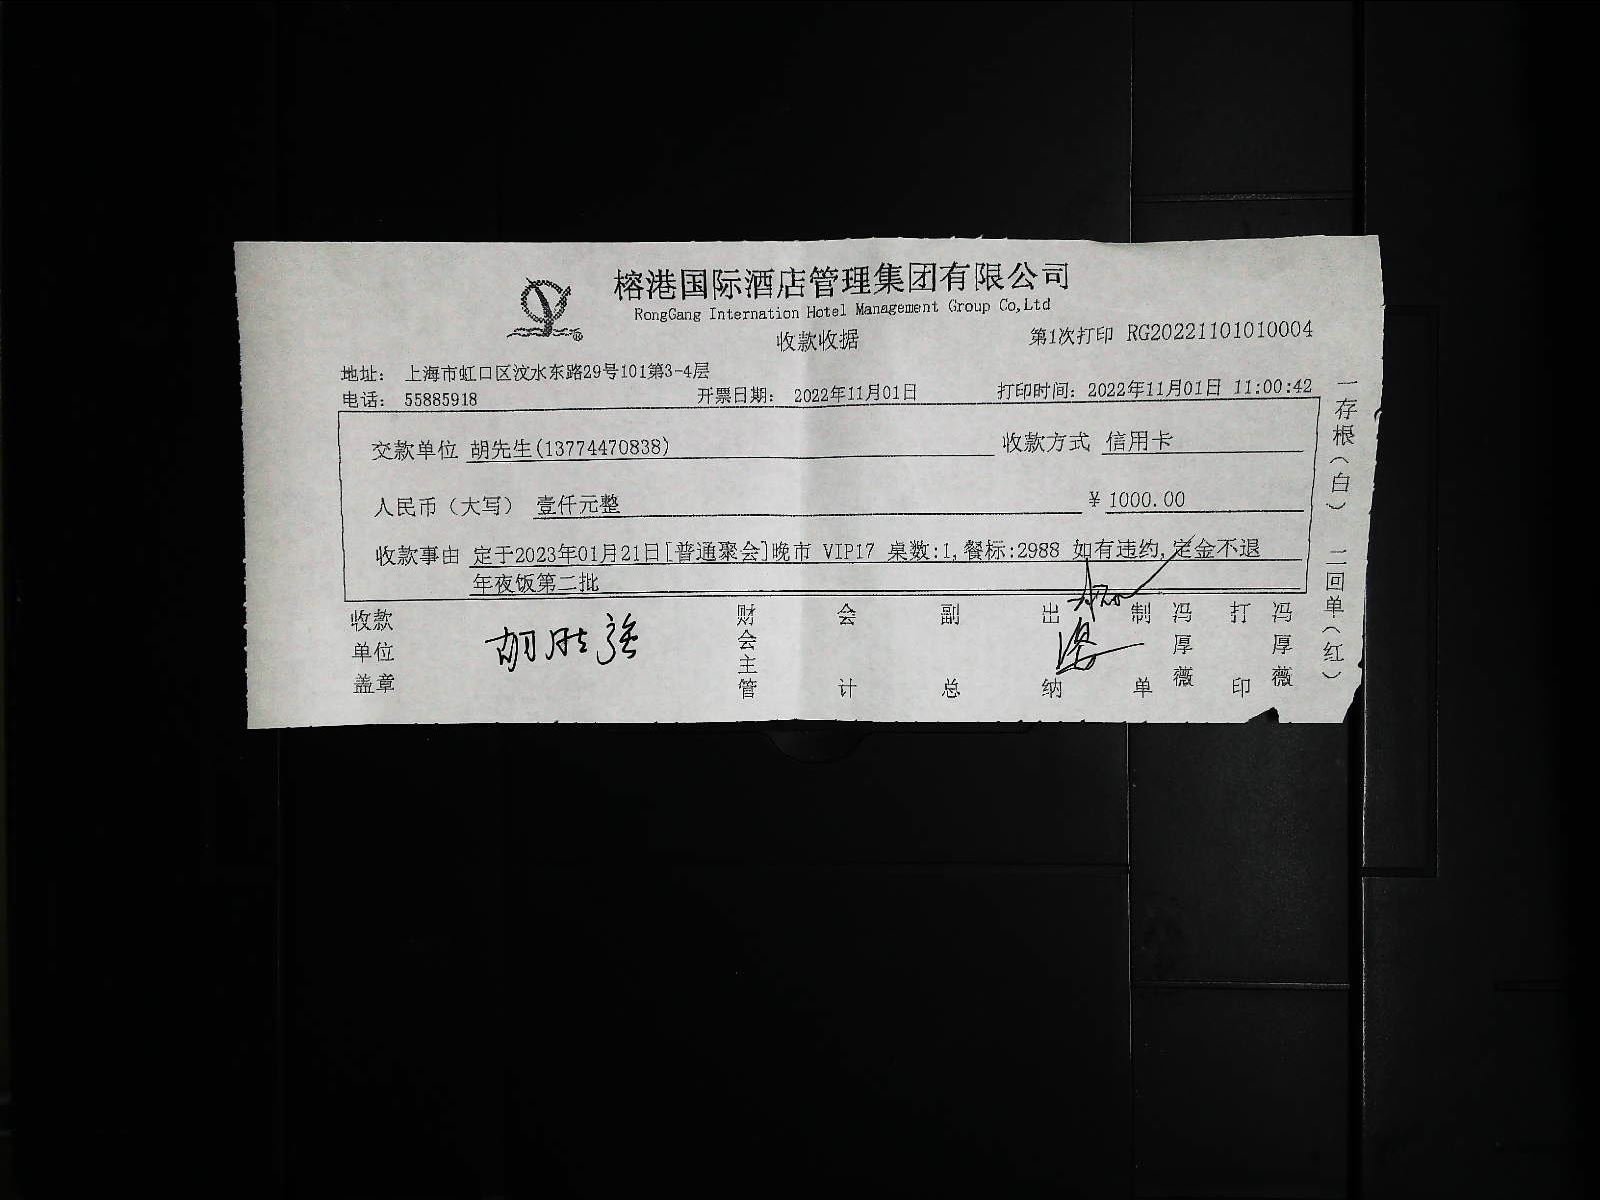 榕港国际酒店管理集团有限公司
RongGang Internation Hotel Management Group Co,Ltd
收款收据
第1次打印 RG20221101010004
地址: 上海市虹口区汶水东路29号101第3-4层
电话: 55885918 开票日期: 2022年11月01日 打印时间: 2022年11月01日 11:00:42
交款单位 胡先生(13774470838) 收款方式 信用卡
人民币(大写) 壹仟元整 ¥ 1000.00
收款事由 定于2023年01月21日[普通聚会]晚市 VIP17 桌数:1,餐标:2988 如有违约,定金不退
年夜饭第二批
收款单位盖章 胡胜强 财会主管 会计 副总 出纳 制单 冯厚薇 打印 冯厚薇
一存根(白) 二回单(红)